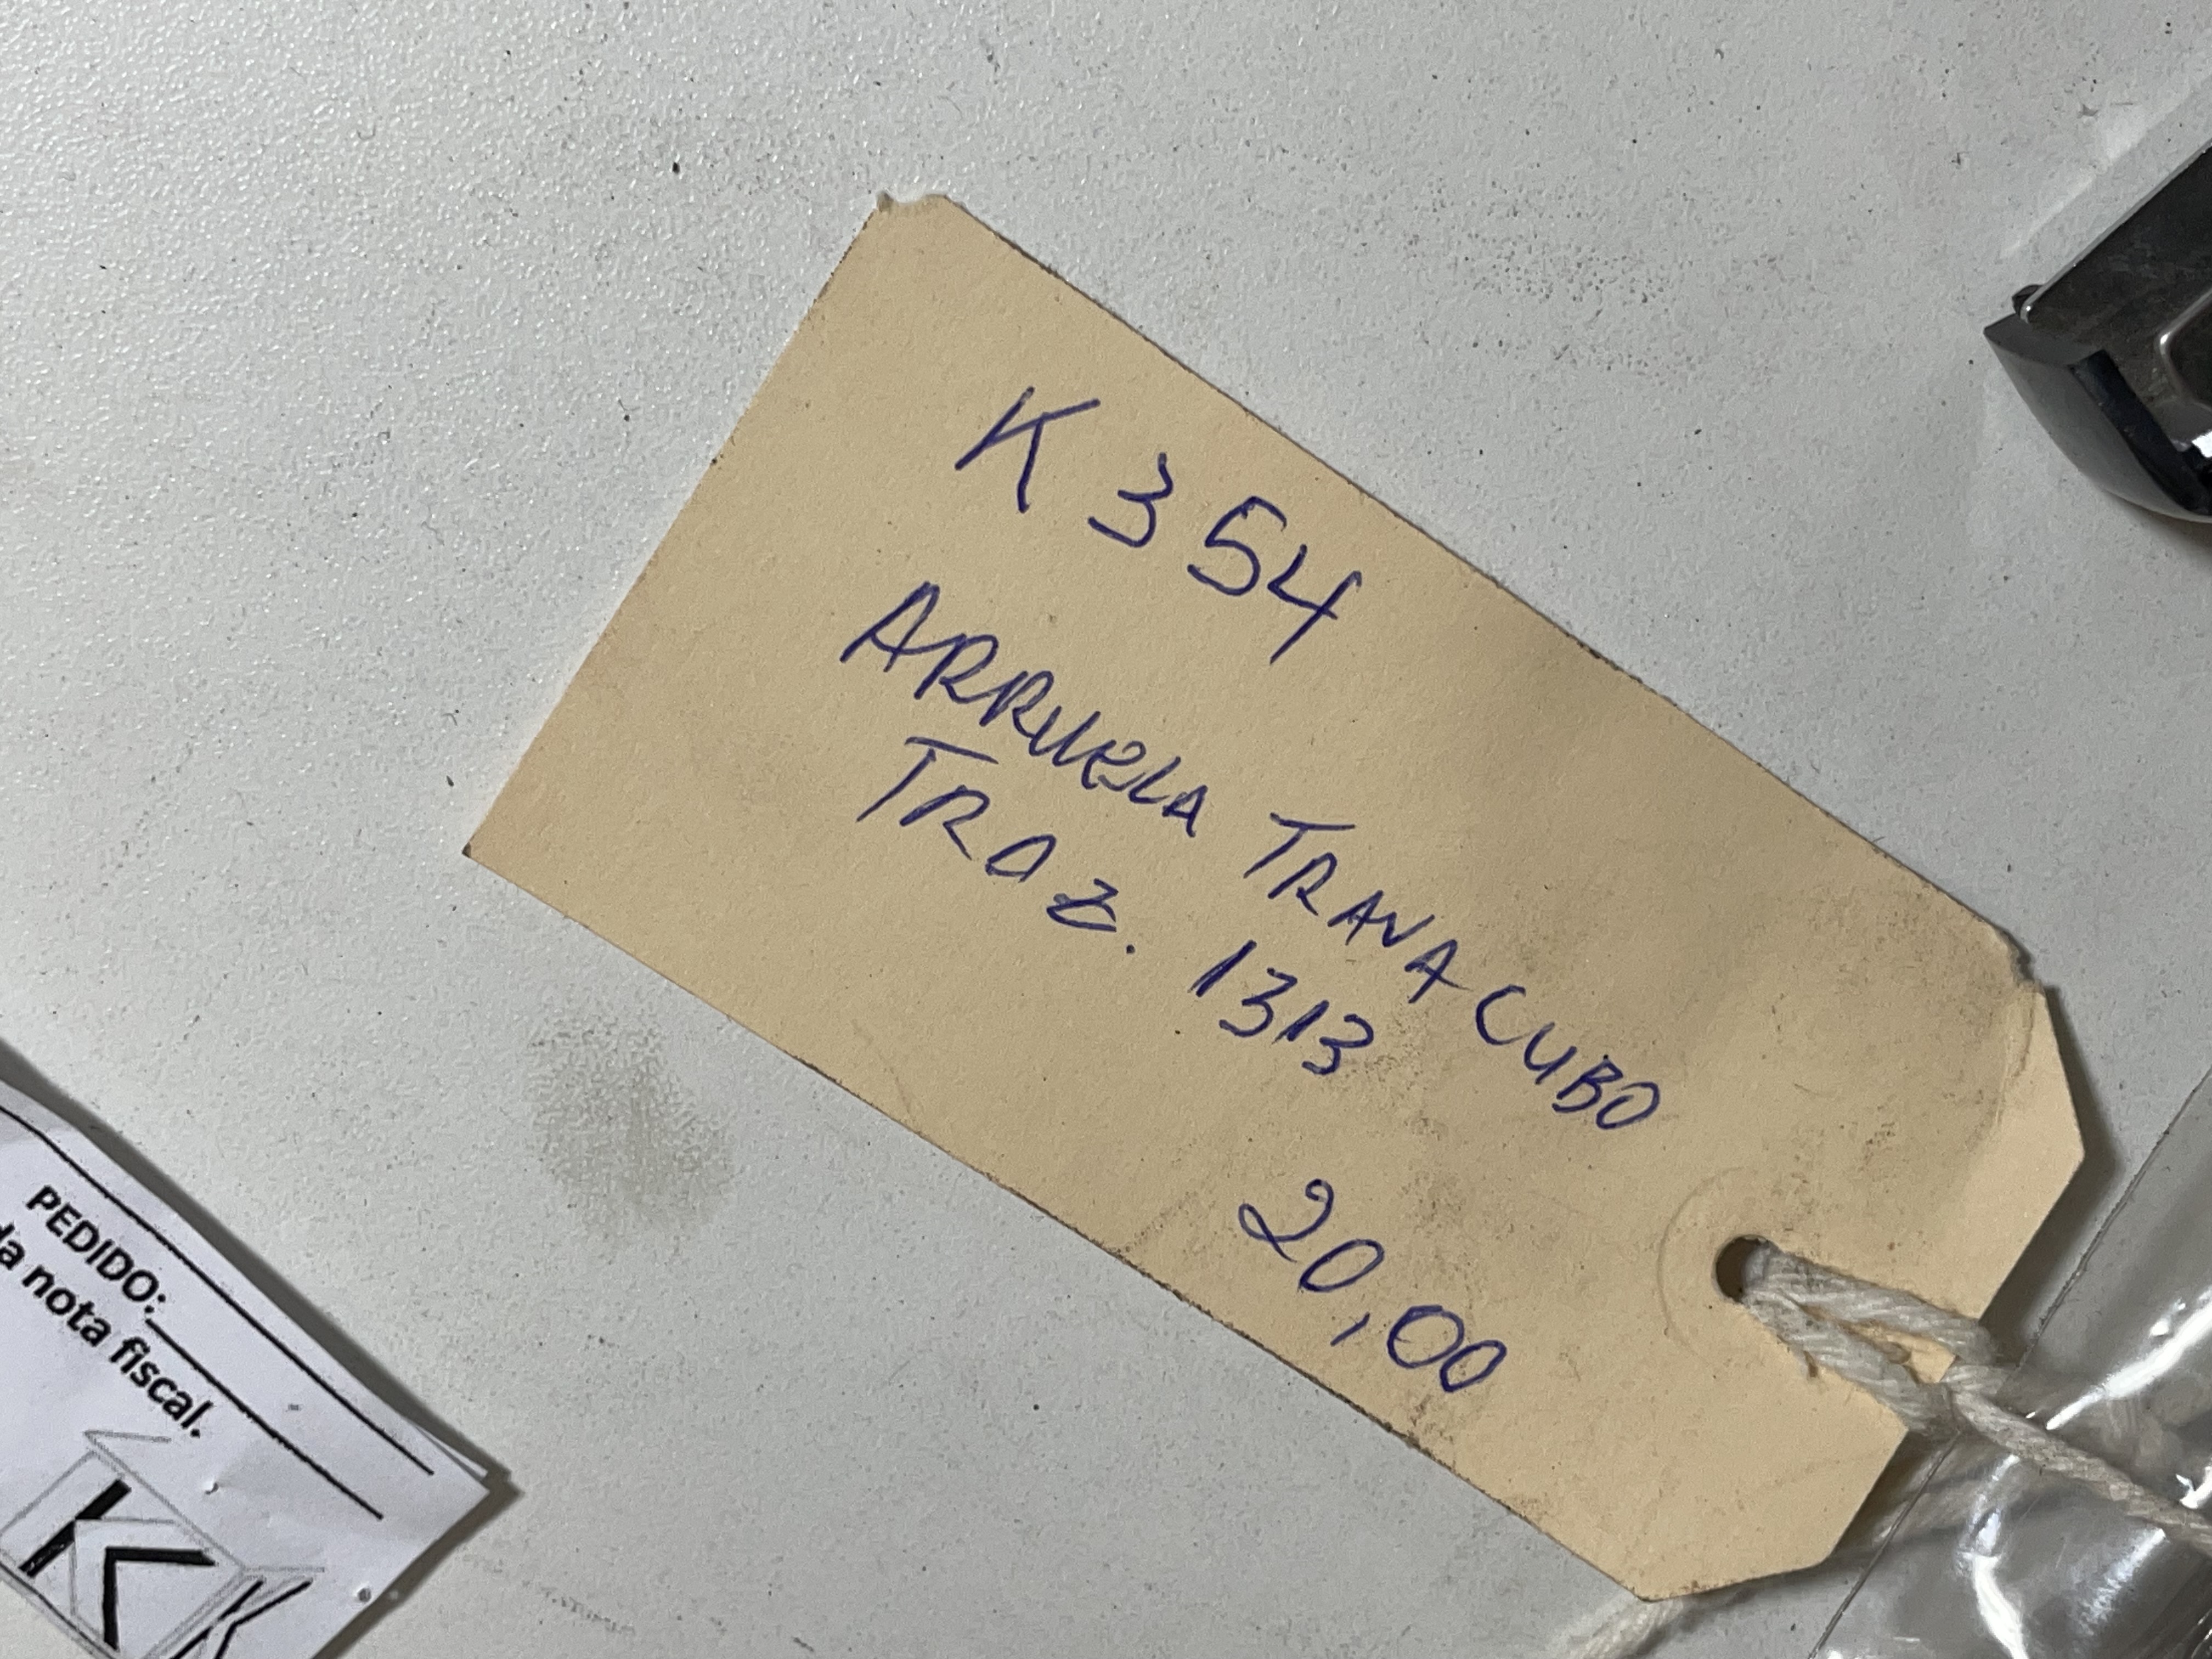 K 354
ARRUELA TRAVA CUBO
TRAZ. 1313 20,00
K
PEDIDO:
da nota fiscal.